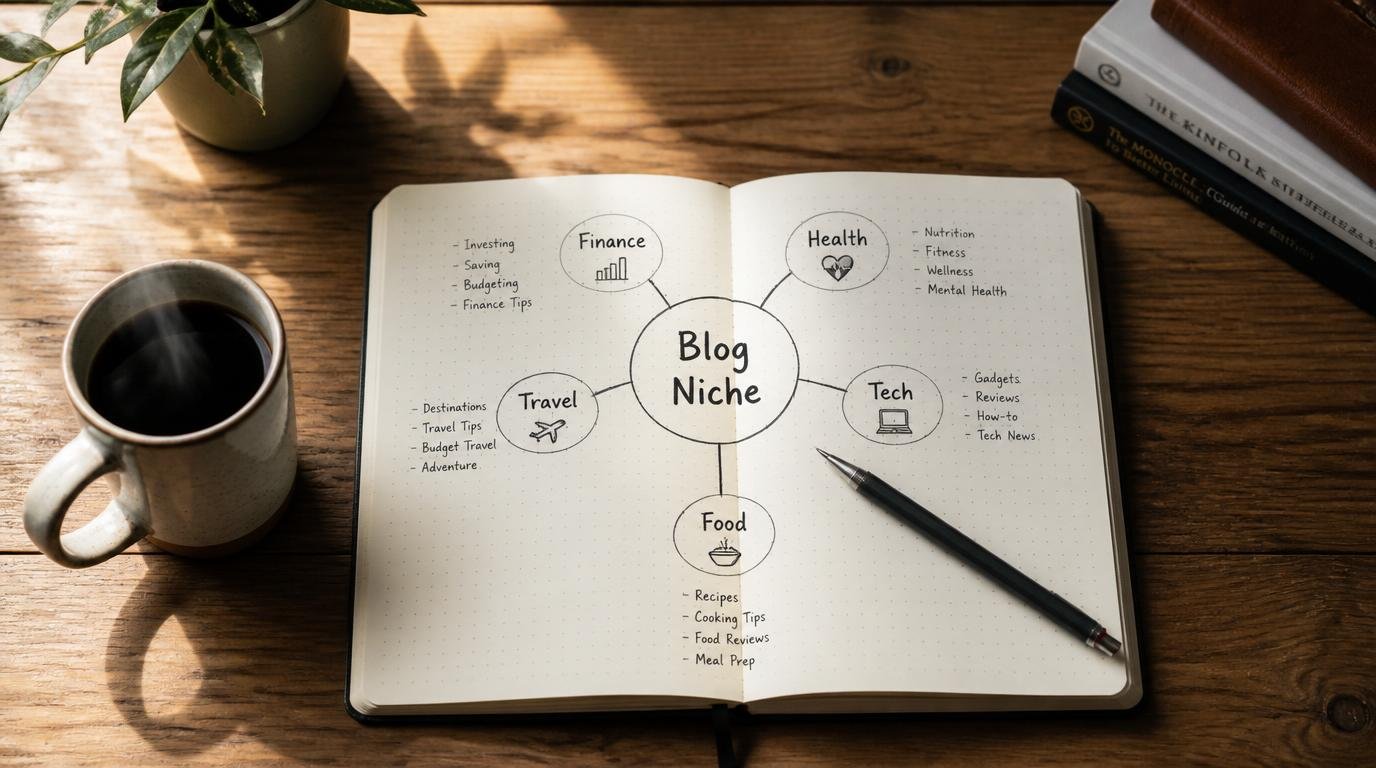 Blog
Niche
Finance
- Investing
- Saving
- Budgeting
- Finance Tips
Health
- Nutrition
- Fitness
- Wellness
- Mental Health
Travel
- Destinations
- Travel Tips
- Budget Travel
- Adventure
Tech
- Gadgets
- Reviews
- How-to
- Tech News
Food
- Recipes
- Cooking Tips
- Food Reviews
- Meal Prep
THE KINFOLK
The MONOCLE Guide
to Better Living